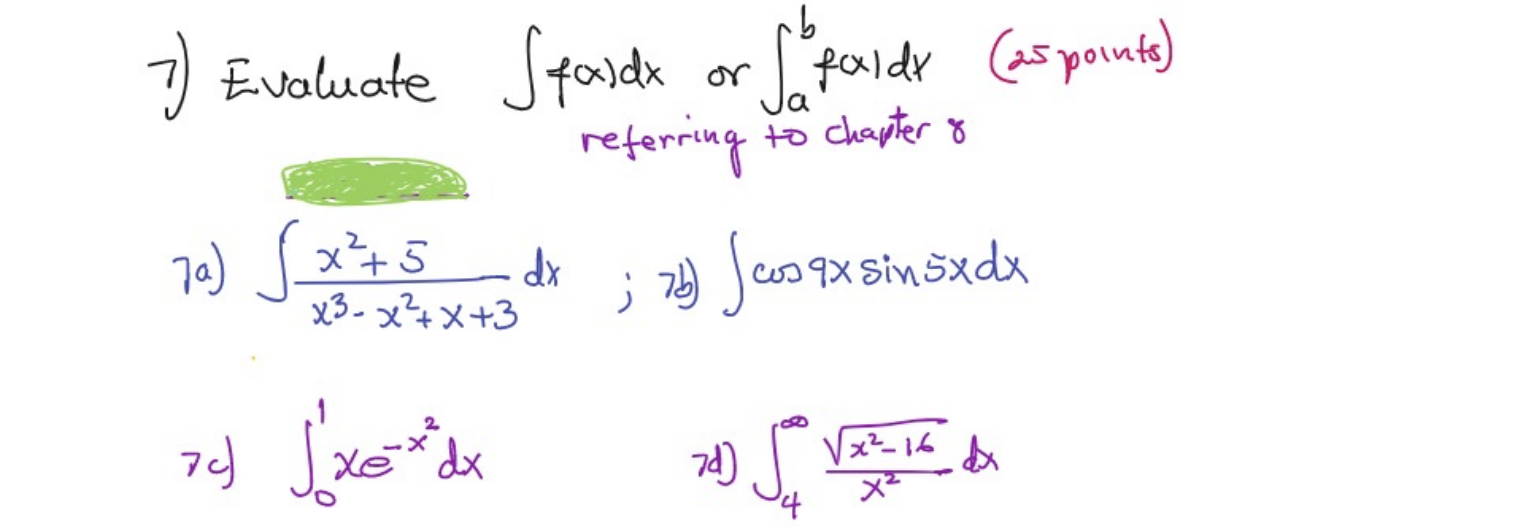 7) Evaluate ∫f(x)dx or ∫_a^b f(x)dx (25 points)
referring to chapter 8
7a) ∫ (x²+5)/(x³-x²+x+3) dx ; 7b) ∫cos9x sin5x dx
7c) ∫_0^1 xe^(-x²) dx 7d) ∫_4^∞ √(x²-16)/x² dx